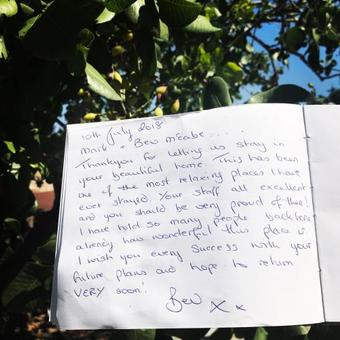 10th July 2018
Mark + Bev McCabe....
Thankyou for letting us stay in
your beautiful home. This has been
one of the most relaxing places I have
ever stayed. Your staff all excellent
and you should be very proud of these!
I have told so many people back here
already how wonderful this place is
I wish you every success with your
future plans and hope to return
VERY soon!
Bev X x